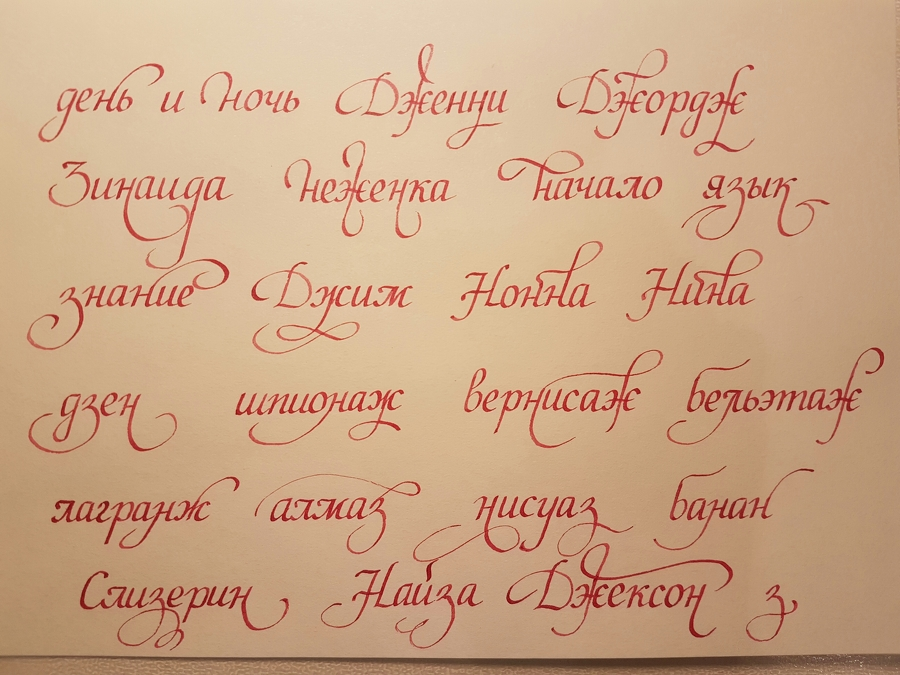 день и ночь Дженни Джордж
Зинаида неженка начало язык
знание Джим Нонна Нина
дзен шпионаж вернисаж бельэтаж
лагранж алмаз нисуаз банан
Слизерин Найза Джексон з